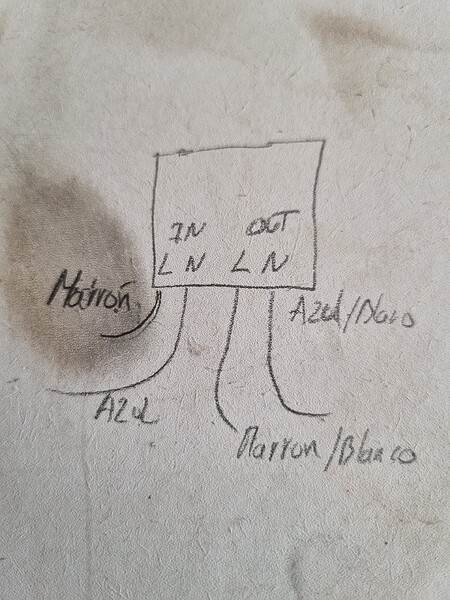 IN OUT
L N L N
Marrón
Azul/Blaco
AZUL
Marron/Blanco